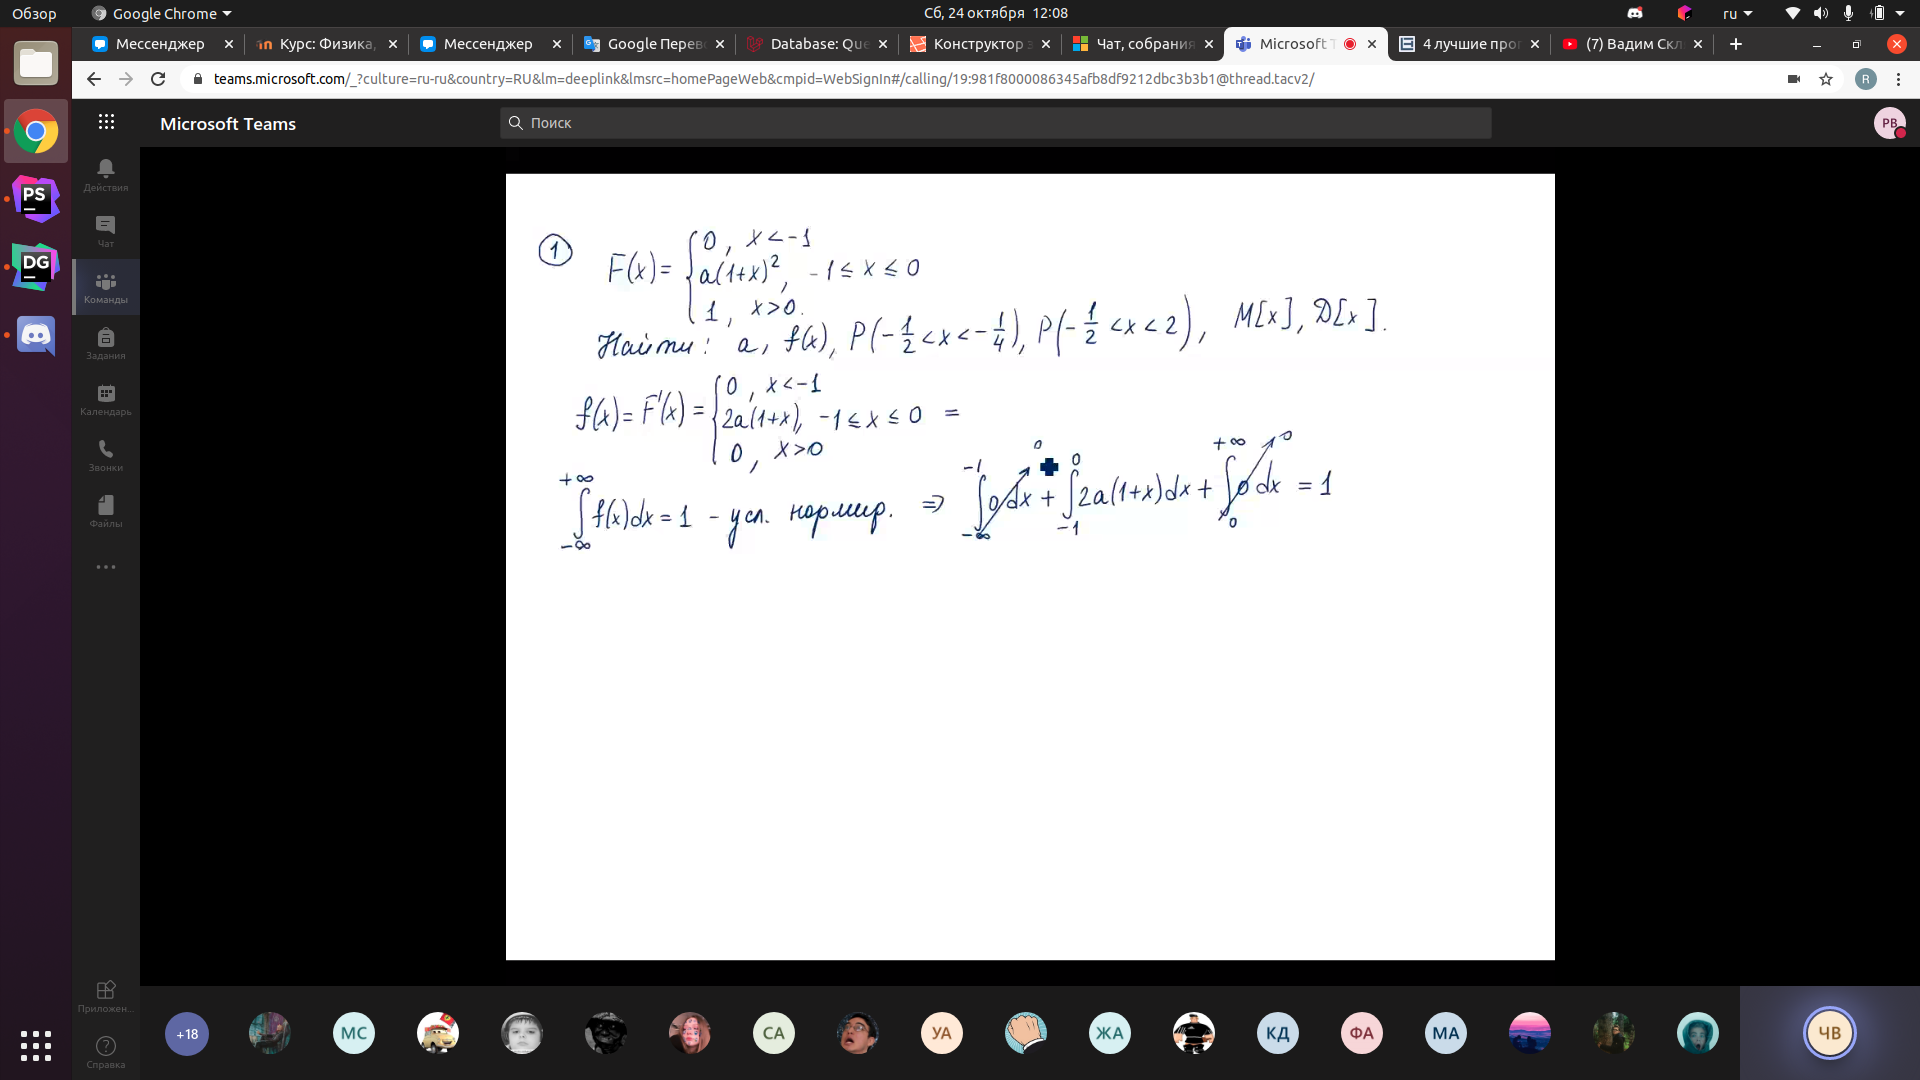 Обзор
Google Chrome
Сб, 24 октября 12:08
ru
Мессенджер
Курс: Физика,
Мессенджер
Google Перев
Database: Que
Конструктор э
Чат, собрания
Microsoft T
4 лучшие про
(7) Вадим Скл
teams.microsoft.com/_?culture=ru-ru&country=RU&lm=deeplink&lmsrc=homePageWeb&cmpid=WebSignIn#/calling/19:981f8000086345afb8df9212dbc3b3b1@thread.tacv2/
R
Microsoft Teams
Поиск
РВ
PS
DG
Действия
Чат
Команды
Задания
Календарь
Звонки
Файлы
Приложен...
Справка
1
F(x) = { 0, x < -1
a(1+x)², -1 ≤ x ≤ 0
1, x > 0.
Найти: a, f(x), P(-1/2 < x < -1/4), P(-1/2 < x < 2), M[x], D[x].
f(x) = F'(x) = { 0, x < -1
2a(1+x), -1 ≤ x ≤ 0 =
0, x > 0
∫_{-∞}^{+∞} f(x)dx = 1 - усл. нормир. ⇒ ∫_{-∞}^{-1} 0 dx → 0 + ∫_{-1}^{0} 2a(1+x)dx + ∫_{0}^{+∞} 0 dx → 0 = 1
+18
МС
СА
УА
ЖА
КД
ФА
МА
ЧВ